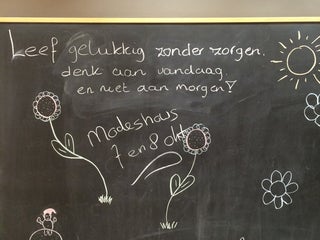 Leef gelukkig zonder zorgen.
denk aan vandaag.
en niet aan morgen!
Modeshow
7 en 8 okt